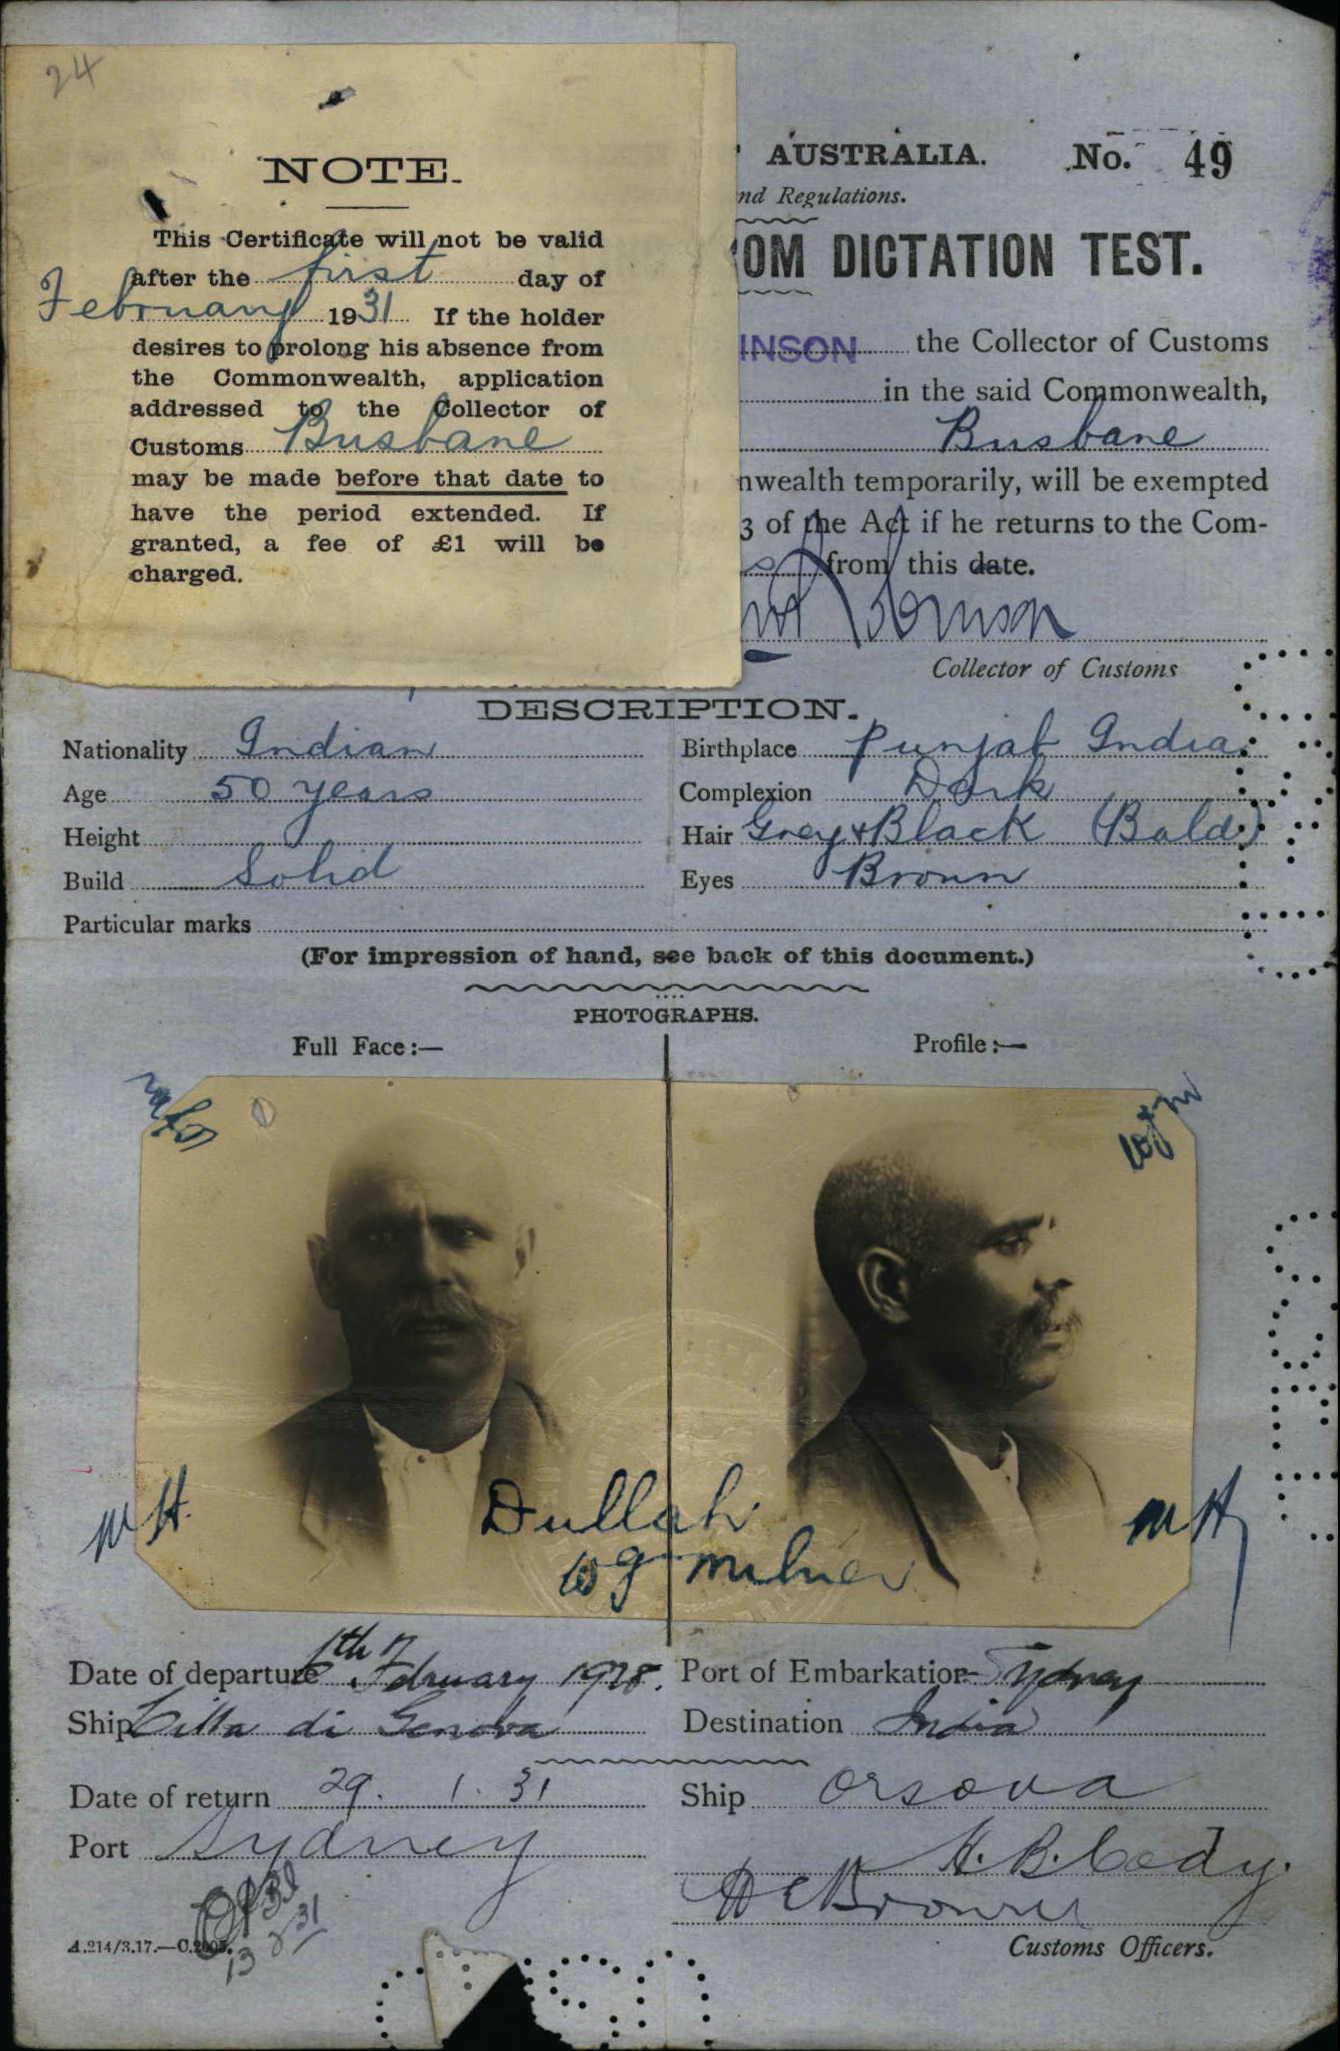 24
NOTE.
This Certificate will not be valid
after the first day of
February 1931 If the holder
desires to prolong his absence from
the Commonwealth, application
addressed to the Collector of
Customs Brisbane
may be made before that date to
have the period extended. If
granted, a fee of £1 will be
charged.
AUSTRALIA. No. 49
nd Regulations.
OM DICTATION TEST.
INSON the Collector of Customs
in the said Commonwealth,
Brisbane
nwealth temporarily, will be exempted
3 of the Act if he returns to the Com-
s from this date.
Collector of Customs
DESCRIPTION.
Nationality Indian Birthplace Punjab India
Age 50 years Complexion Dark
Height Hair Grey & Black (Bald)
Build Solid Eyes Brown
Particular marks
(For impression of hand, see back of this document.)
PHOTOGRAPHS.
Full Face:— Profile:—
WH MH
Dullah
W J Milner
Date of departure 7th February 1928. Port of Embarkation Sydney
Ship Citta di Genova Destination India
Date of return 29. 1. 31 Ship Orsova
Port Sydney
H. B. Cody.
Brown
13 31
A.214/3.17.—C.2005. Customs Officers.